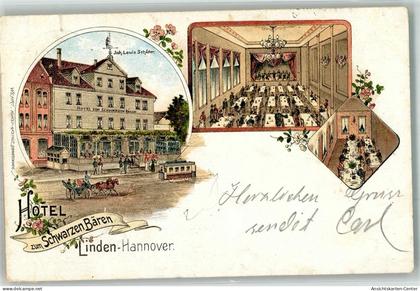 Joh. Louis Schäfer
HOTEL ZUM SCHWARZEN BÄREN
HOTEL
zum Schwarzen Bären
Linden-Hannover.
Herzlichen Gruss
sendet Carl
www.Ansichtskarten-Center.de